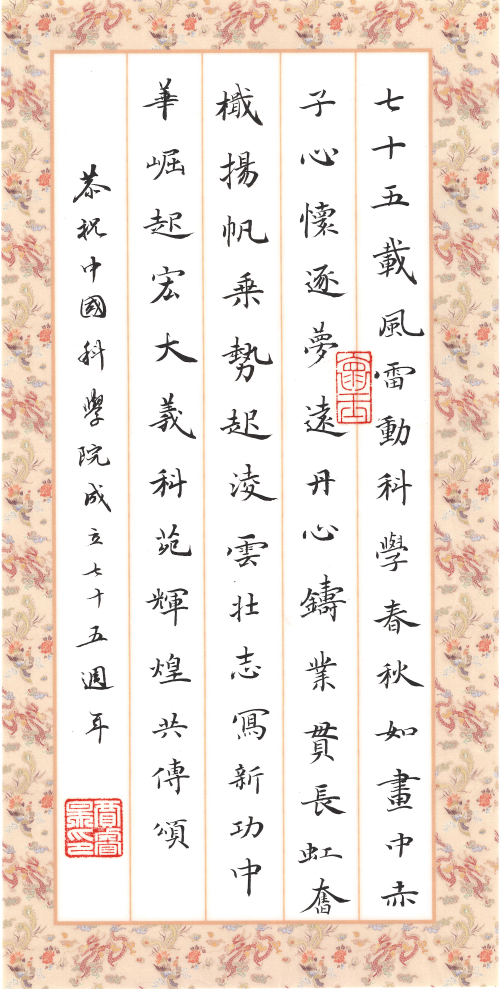 七十五載風雷動科學春秋如畫中赤
子心懷逐夢遠丹心鑄業貫長虹奮
檝揚帆乘勢起淩雲壯志寫新功中
華崛起宏大義科苑輝煌共傳頌
恭祝中國科學院成立七十五週年